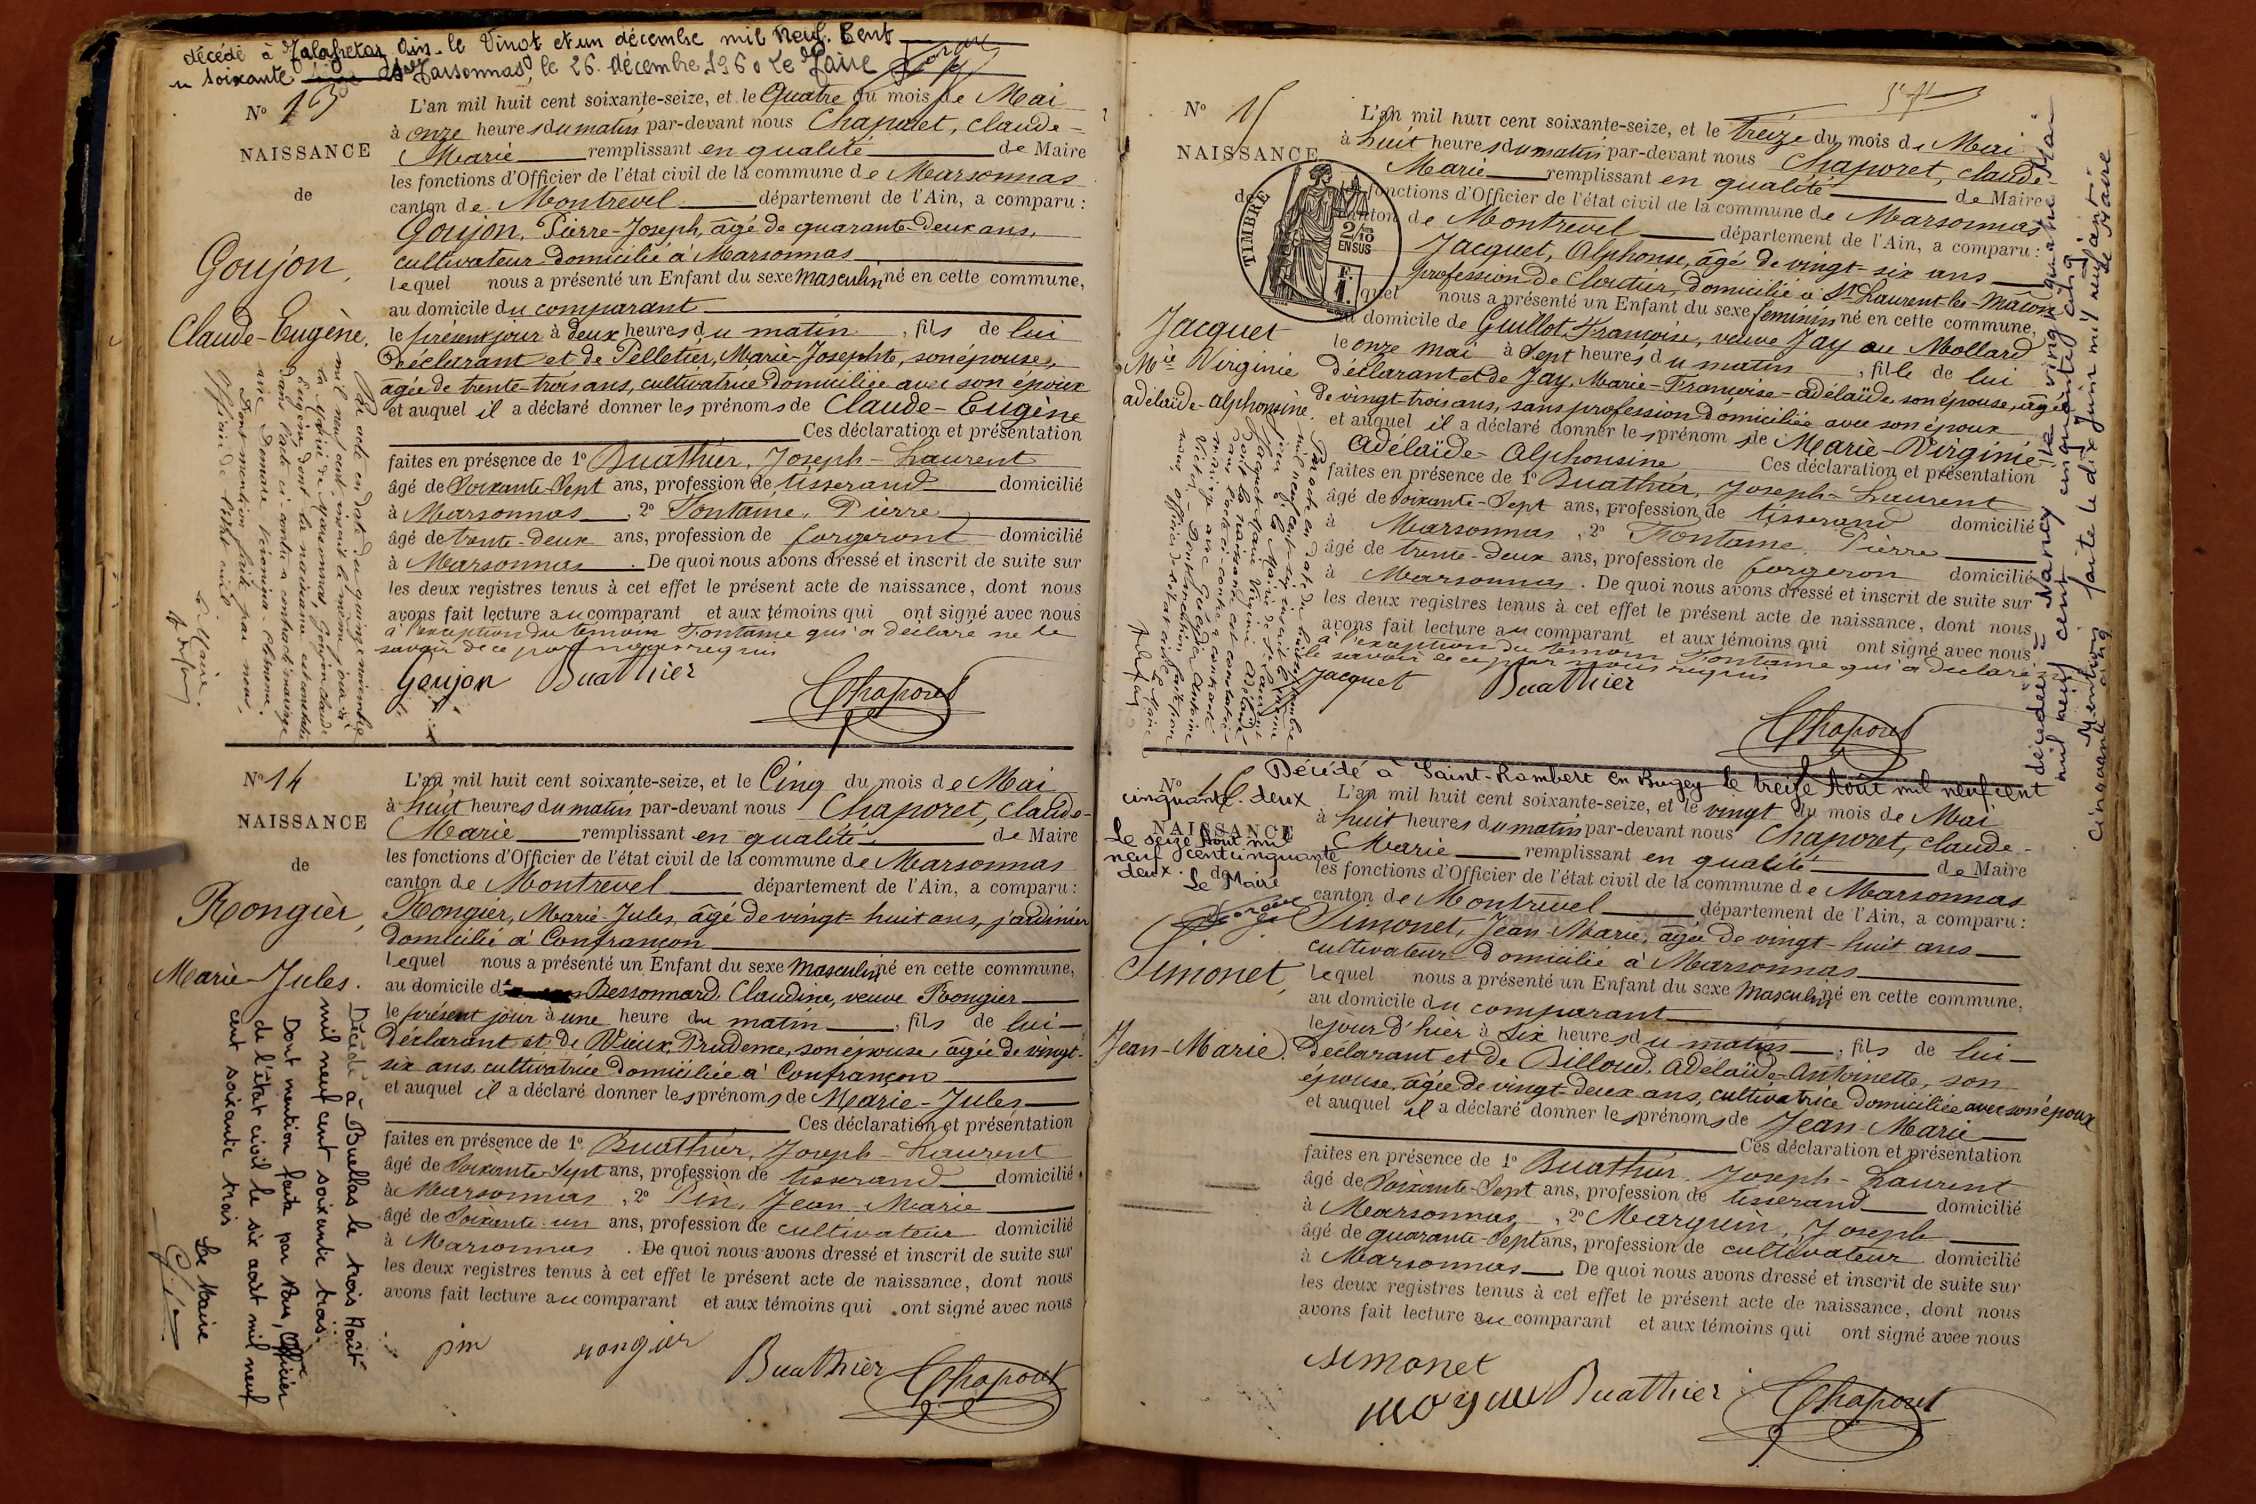 décédé à Jalafretaz Ain le Vingt et un décembre mil Neuf. Cent
soixante Marsonnas, le 26 décembre 1960 Le Maire
N° 13
NAISSANCE
de
Goujon,
Claude-Eugène.
L'an mil huit cent soixante-seize, et le Quatre du mois de Mai
à onze heures du matin par-devant nous Chaporet, Claude-
Marie remplissant en qualité de Maire
les fonctions d'Officier de l'état civil de la commune de Marsonnas
canton de Montrevel département de l'Ain, a comparu :
Goujon, Pierre-Joseph, âgé de quarante-deux ans,
cultivateur domicilié à Marsonnas
lequel nous a présenté un Enfant du sexe masculin né en cette commune,
au domicile du comparant
le présent jour à deux heures du matin, fils de lui
déclarant et de Pelletier, Marie-Josephte, son épouse,
âgée de trente-trois ans, cultivatrice domiciliée avec son époux
et auquel il a déclaré donner les prénoms de Claude-Eugène
Ces déclaration et présentation
faites en présence de 1° Buathier, Joseph-Laurent
âgé de soixante-sept ans, profession de tisserand domicilié
à Marsonnas, 2° Fontaine, Pierre
âgé de trente-deux ans, profession de forgeront domicilié
à Marsonnas. De quoi nous avons dressé et inscrit de suite sur
les deux registres tenus à cet effet le présent acte de naissance, dont nous
avons fait lecture au comparant et aux témoins qui ont signé avec nous
à l'exception du témoin Fontaine qui a déclaré ne le
savoir de ce par nous requis
Goujon Buathier Chaporet
Par acte en date du quinze novembre
mil neuf cent, inscrit le même jour à
la mairie de Marsonnas, Goujon Claude
Eugène, dont la naissance est constatée
dans l'acte ci-contre a contracté mariage
avec
Dont mention faite par nous,
Officier de l'état civil
Le Maire.
N° 14
NAISSANCE
de
Rongier,
Marie-Jules.
L'an mil huit cent soixante-seize, et le Cinq du mois de Mai
à huit heures du matin par-devant nous Chaporet, Claude-
Marie remplissant en qualité de Maire
les fonctions d'Officier de l'état civil de la commune de Marsonnas
canton de Montrevel département de l'Ain, a comparu :
Rongier, Marie-Jules, âgé de vingt-huit ans, jardinier
domicilié à Confrançon
lequel nous a présenté un Enfant du sexe masculin né en cette commune,
au domicile de Bessonnard, Claudine, veuve Rongier
le présent jour à une heure du matin, fils de lui
déclarant et de Vieux, Prudence, son épouse, âgée de vingt-
six ans, cultivatrice domiciliée à Confrançon
et auquel il a déclaré donner les prénoms de Marie-Jules
Ces déclaration et présentation
faites en présence de 1° Buathier, Joseph-Laurent
âgé de soixante-sept ans, profession de tisserand domicilié
à Marsonnas, 2° Pin, Jean-Marie
âgé de soixante-un ans, profession de cultivateur domicilié
à Marsonnas. De quoi nous avons dressé et inscrit de suite sur
les deux registres tenus à cet effet le présent acte de naissance, dont nous
avons fait lecture au comparant et aux témoins qui ont signé avec nous
pin rongier Buathier Chaporet
Décédé à Buellas le trois Août
mil neuf cent soixante trois.
Dont mention faite par Nous, Officier
de l'état civil le six août mil neuf
cent soixante trois
Le Maire
N° 15
NAISSANCE
de
TIMBRE
2/10
EN SUS
Jacquet
Mie Virginie
adélaïde-alphonsine.
L'an mil huit cent soixante-seize, et le treize du mois de Mai
à huit heures du matin par-devant nous Chaporet, Claude-
Marie remplissant en qualité de Maire
les fonctions d'Officier de l'état civil de la commune de Marsonnas
canton de Montrevel département de l'Ain, a comparu :
Jacquet, Alphonse, âgé de vingt-six ans
profession de cloutier, domicilié à St Laurent-les-Mâcon
lequel nous a présenté un Enfant du sexe féminin né en cette commune,
au domicile de Guillot, Françoise, veuve Jay au Mollard
le onze mai à sept heures du matin, fille de lui
déclarant et de Jay, Marie-Françoise-adélaïde son épouse, âgée
de vingt-trois ans, sans profession domiciliée avec son époux
et auquel il a déclaré donner les prénoms de Marie-Virginie-
Adélaïde-Alphonsine Ces déclaration et présentation
faites en présence de 1° Buathier, Joseph-Laurent
âgé de soixante-sept ans, profession de tisserand domicilié
à Marsonnas, 2° Fontaine, Pierre
âgé de trente-deux ans, profession de forgeron domicilié
à Marsonnas. De quoi nous avons dressé et inscrit de suite sur
les deux registres tenus à cet effet le présent acte de naissance, dont nous
avons fait lecture au comparant et aux témoins qui ont signé avec nous
à l'exception du témoin Fontaine qui a déclaré ne
le savoir de ce par nous requis
Jacquet Buathier Chaporet
décédée à Nancy le vingt quatre Mai
mil neuf cent cinquante cinq
Mention faite le dix Juin mil neuf cent
cinquante cinq Le Maire
N° 16
NAISSANCE
de
Décédé à Saint-Rambert en Bugey le treize Août mil neuf cent
cinquante-deux
Le seize Août mil
neuf cent cinquante
deux.
Le Maire
Simonet,
Jean-Marie.
L'an mil huit cent soixante-seize, et le vingt du mois de Mai
à huit heures du matin par-devant nous Chaporet, Claude-
Marie remplissant en qualité de Maire
les fonctions d'Officier de l'état civil de la commune de Marsonnas
canton de Montrevel département de l'Ain, a comparu :
Simonet, Jean-Marie, âgé de vingt-huit ans
cultivateur domicilié à Marsonnas
lequel nous a présenté un Enfant du sexe masculin né en cette commune,
au domicile du comparant
le jour d'hier à six heures du matin, fils de lui
déclarant et de Billoud, Adélaïde-Antoinette, son
épouse, âgée de vingt-deux ans, cultivatrice domiciliée avec son époux
et auquel il a déclaré donner les prénoms de Jean-Marie
Ces déclaration et présentation
faites en présence de 1° Buathier, Joseph-Laurent
âgé de soixante-sept ans, profession de tisserand domicilié
à Marsonnas, 2° Marguin, Joseph
âgé de quarante-sept ans, profession de cultivateur domicilié
à Marsonnas. De quoi nous avons dressé et inscrit de suite sur
les deux registres tenus à cet effet le présent acte de naissance, dont nous
avons fait lecture au comparant et aux témoins qui ont signé avec nous
simonet
Buathier Chaporet